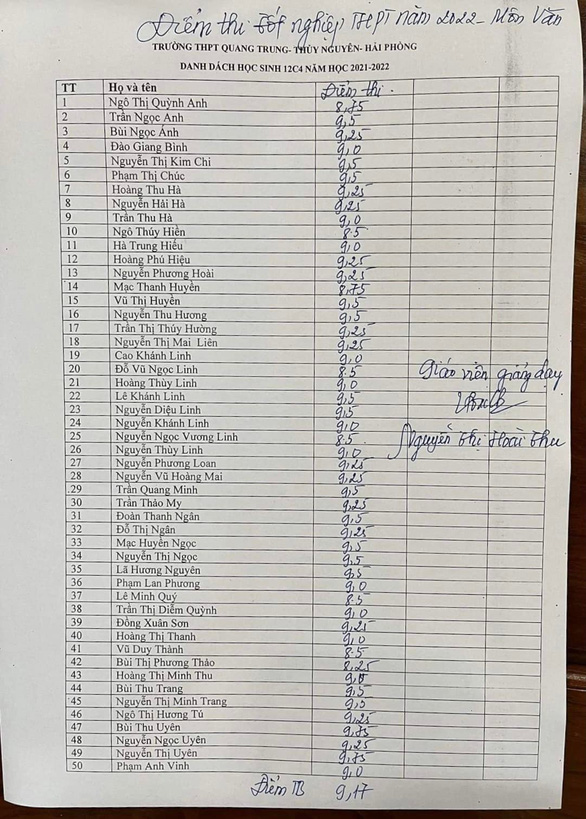 Điểm thi Tốt nghiệp THPT năm 2022 - Môn Văn
TRƯỜNG THPT QUANG TRUNG- THỦY NGUYÊN- HẢI PHÒNG
DANH DÁCH HỌC SINH 12C4 NĂM HỌC 2021-2022
TT Họ và tên Điểm thi
1 Ngô Thị Quỳnh Anh 8,75
2 Trần Ngọc Anh 9,5
3 Bùi Ngọc Ánh 9,25
4 Đào Giang Bình 9,0
5 Nguyễn Thị Kim Chi 9,5
6 Phạm Thị Chúc 9,5
7 Hoàng Thu Hà 9,25
8 Nguyễn Hải Hà 9,25
9 Trần Thu Hà 9,0
10 Ngô Thúy Hiền 8.5
11 Hà Trung Hiếu 9,0
12 Hoàng Phú Hiệu 9,25
13 Nguyễn Phương Hoài 9,25
14 Mạc Thanh Huyền 8,75
15 Vũ Thị Huyền 9,5
16 Nguyễn Thu Hương 9,5
17 Trần Thị Thúy Hường 9,25
18 Nguyễn Thị Mai Liên 9,25
19 Cao Khánh Linh 9,0
20 Đỗ Vũ Ngọc Linh 8.5 Giáo viên giảng dạy
21 Hoàng Thùy Linh 9,0
22 Lê Khánh Linh 9,5
23 Nguyễn Diệu Linh 9,5
24 Nguyễn Khánh Linh 9,0
25 Nguyễn Ngọc Vương Linh 8.5 Nguyễn Thị Hoài Thu
26 Nguyễn Thùy Linh 9,0
27 Nguyễn Phương Loan 9,25
28 Nguyễn Vũ Hoàng Mai 9,25
29 Trần Quang Minh 9,5
30 Trần Thảo My 9,25
31 Đoàn Thanh Ngân 9,5
32 Đỗ Thị Ngân 9,25
33 Mạc Huyền Ngọc 9,5
34 Nguyễn Thị Ngọc 9,5
35 Lã Hương Nguyên 9,5
36 Phạm Lan Phương 9,0
37 Lê Minh Quý 8.5
38 Trần Thị Diễm Quỳnh 9,0
39 Đồng Xuân Sơn 9,25
40 Hoàng Thị Thanh 9,0
41 Vũ Duy Thành 8.5
42 Bùi Thị Phương Thảo 8,25
43 Hoàng Thị Minh Thu
44 Bùi Thu Trang 9,5
45 Nguyễn Thị Minh Trang 9,5
46 Ngô Thị Hương Tú 9,25
47 Bùi Thu Uyên 9,75
48 Nguyễn Ngọc Uyên 9,25
49 Nguyễn Thị Uyên 9,75
50 Phạm Anh Vinh 9,0
Điểm TB 9,17